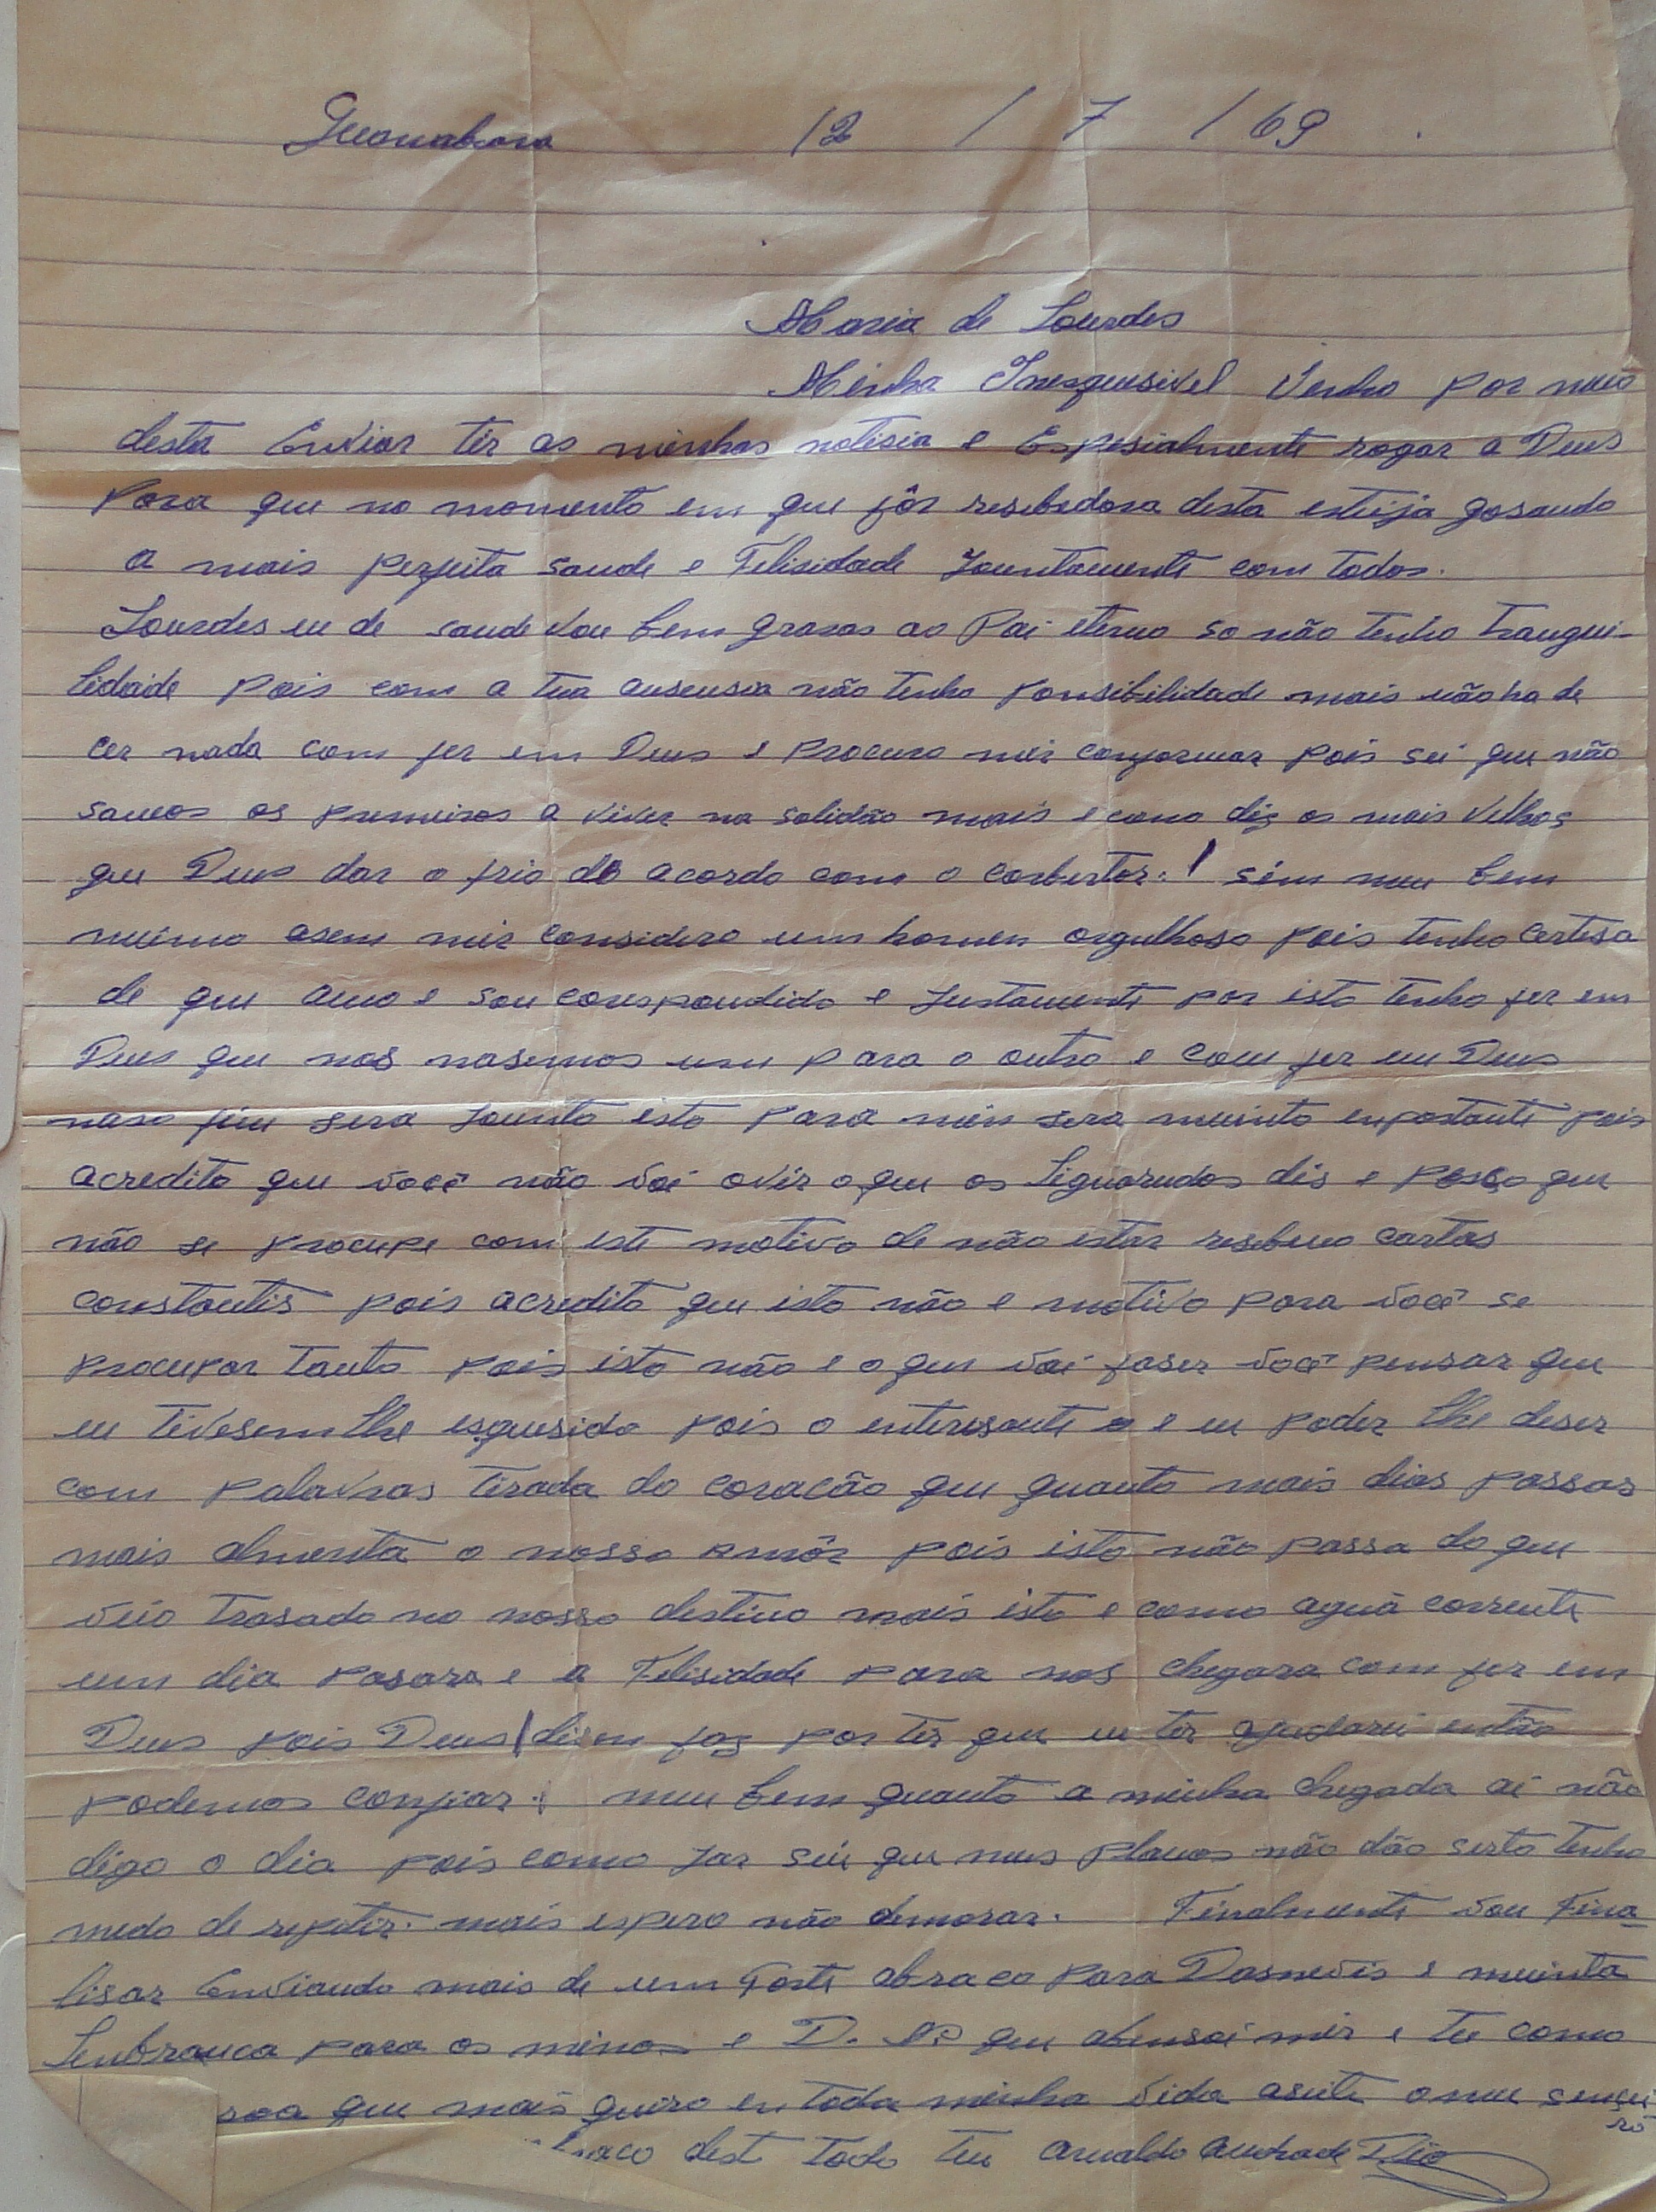 Guanabara 12 / 7 / 69
Maria de Lourdes
Minha Inesquesivel Venho por meio
desta Enviar ter as minhas notisia e Espesialmente rogar a Deus
Para que no momento em que fôr resebedora desta esteija gosando
a mais perfeita saude e Felisidade Jountamente com todos.
Lourdes eu de saude vou bem grasas ao Pai eterno so não tenho tranqui-
lidade pois com a tua ausensia não tenho ponsibilidade mais não ha de
cer nada com fer em Deus e procuro mir conformar pois sei que não
samos os premeiros a viver na solidão mais e como diz os mais velhos
que Deus dar o frio do acordo com o corbertor. ! sim meu bem
meimo asem mir considero um homen orgulhoso pois tenho certesa
de que amo e sou correspondido e justamente por isto tenho fer em
Deus que nos nasemos um para o outro e com fer em Deus
naso fim sera jounto isto para mim sera muinto enportante pois
acredito que você não vai ovir o que os linguarudos dis e peso que
não se procupe com este motivo de não estar resebeno cartas
constantis pois acredito que isto não e motivo para você se
procupar tanto pois isto não e o que vai faser você pensar que
eu tivesem lhe esquesido pois o enteresante e eu poder lhe deser
com palavras tirada do coracão que quanto mais dias passas
mais almenta o nosso amôr pois isto não passa do que
veio trasado no nosso destino mais isto e como aguà corrente
um dia pasara e a Felisidade para nos chegara com fer em
Deus pois Deus disem faz por ter que eu ter ajudarei então
podemos confiar. ! meu bem quanto a minha chegada ai não
digo o dia pois como jar sei que meus planos não dão serto tenho
medo de repetir. mais espero não demorar. Finalmente vou Fina-
lisar Enviando mais de um Forte abraco para Dasnevis e muinta
Lenbranca para os minos e D. que abensoi mir e tu como
soa que mais quiro en toda minha vida aseite o meu sencei
ro
dest todo teu Arnaldo Andrade